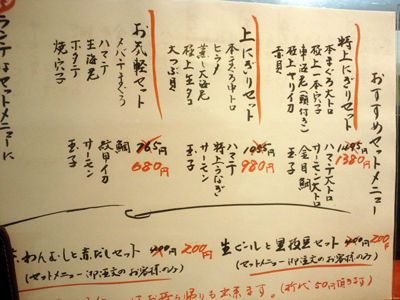 おすすめセットメニュー
特上にぎりセット
本まぐろ大トロ
極上一本穴子
車海老(頭付き)
極上ヤリイカ
赤貝
ハマチ大トロ
サーモン大トロ
金目鯛
玉子
1380円
上にぎりセット
本まぐろ中トロ
ヒラメ
蒸し大海老
極上生タコ
大つぶ貝
ハマチ
特上うなぎ
サーモン
玉子
1055円
980円
お気軽セット
メバチまぐろ
ハマチ
生海老
ホタテ
焼穴子
鯛
紋甲イカ
サーモン
玉子
765円
680円
ランチはセットメニューに
茶わんむしと赤だしセット 400円 200円
(セットメニュー御注文のお客様のみ)
生ビールと黒枝豆セット 400円 200円
(セットメニュー御注文のお客様のみ)
お持ち帰りも出来ます。(折代50円頂きます)